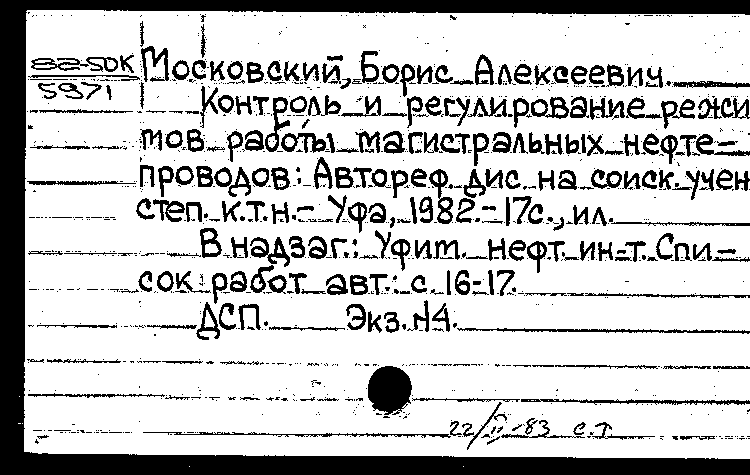 82-5DK Московский, Борис Алексеевич.
5971 Контроль и регулирование режи
мов работы магистральных нефте-
проводов: Автореф. дис. на соиск. учен
степ. к.т.н.- Уфа, 1982.-17с., ил.
В надзаг.: Уфим. нефт. ин-т. Спи-
сок работ авт.: с. 16-17.
ДСП. Экз.N4.
22/II-83 С.Т